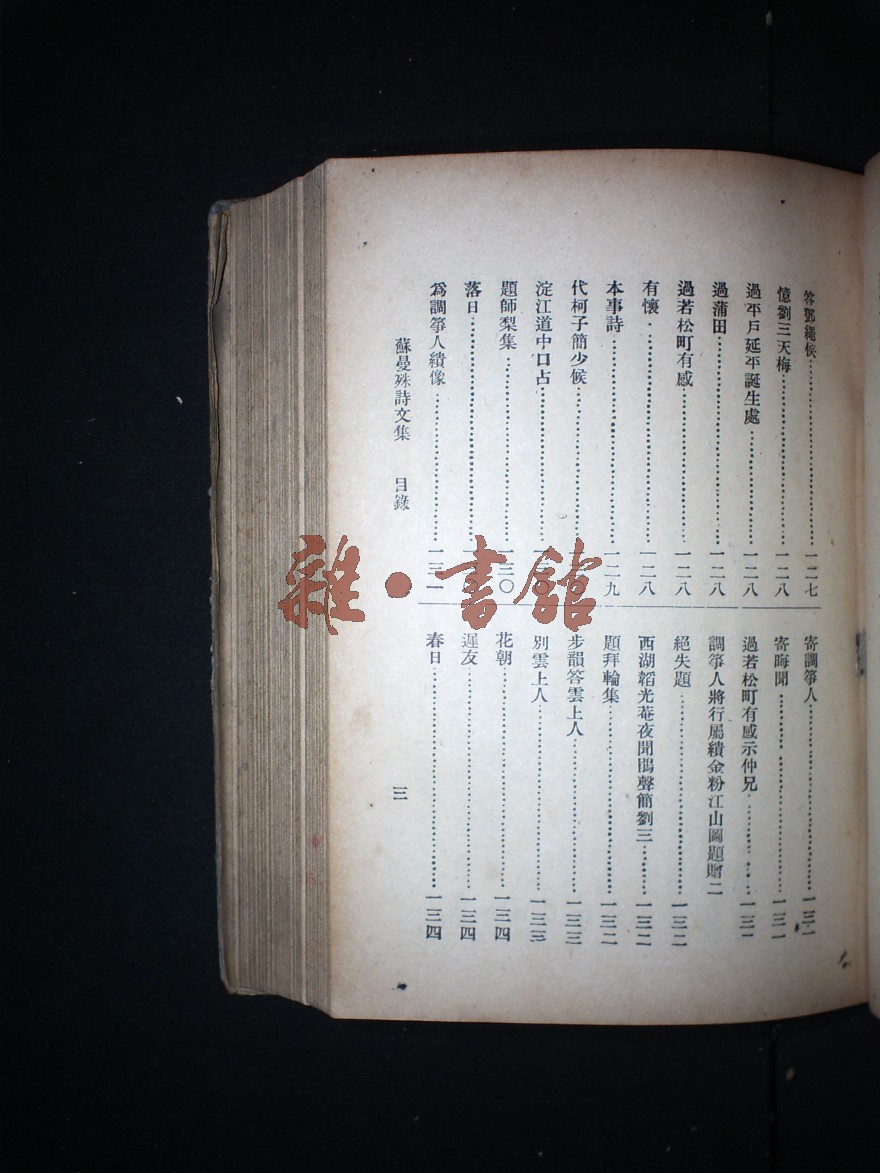 答鄧繩侯……一二七
憶劉三天梅……一二八
過平戶延平誕生處……一二八
過蒲田……一二八
過若松町有感……一二八
有懷……一二八
本事詩……一二九
代柯子簡少候
淀江道中口占……一三〇
題師梨集……一三〇
落日
為調箏人繢像……一三一
寄調箏人……一三一
寄晦聞……一三一
過若松町有感示仲兄……一三一
調箏人將行屬繢金粉江山圖題贈二
絕失題……一三二
西湖韜光菴夜聞鵑聲簡劉三……一三二
題拜輪集……一三二
步韻答雲上人……一三三
別雲上人……一三三
花朝……一三四
遲友……一三四
春日……一三四
蘇曼殊詩文集 目錄
三
雜·書館